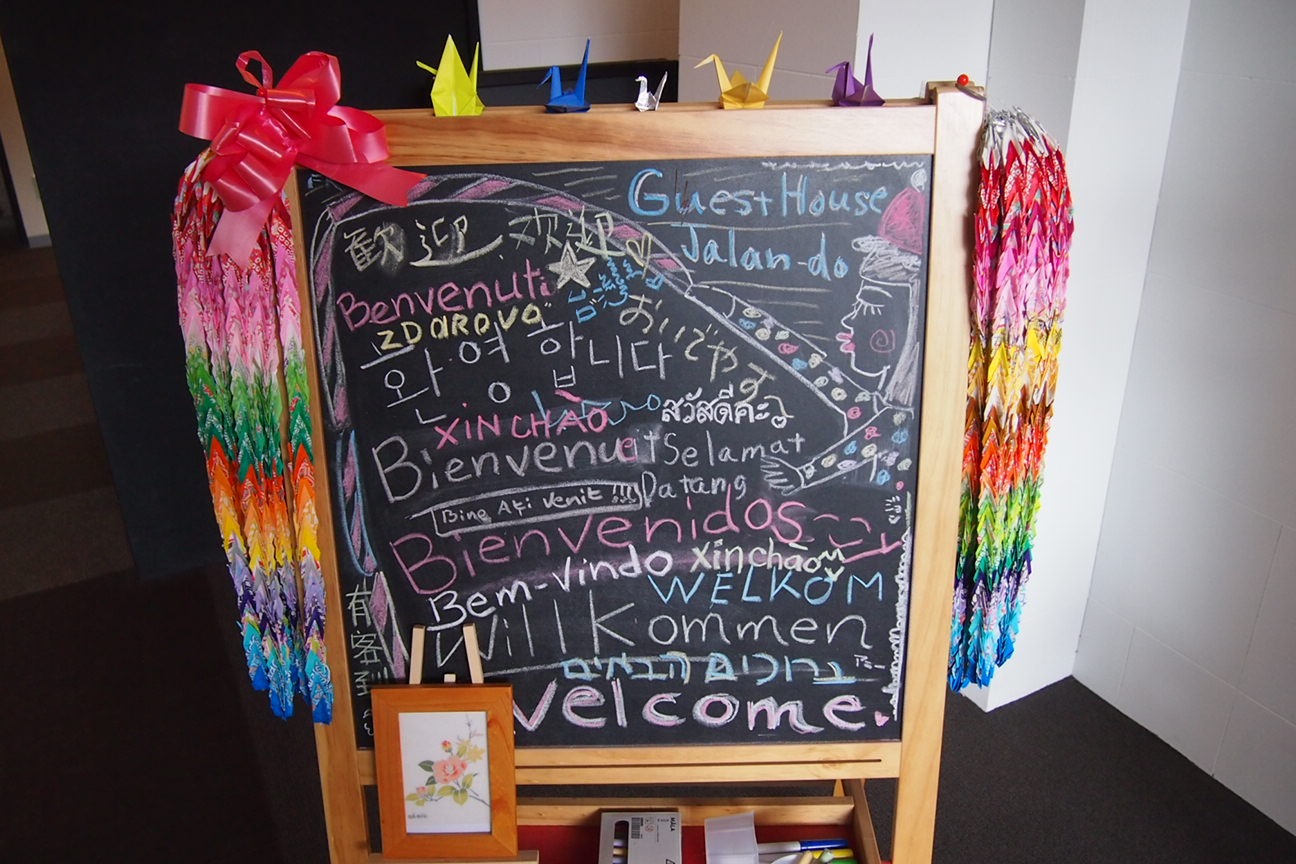 GuestHouse
Jalan-do
歓迎 欢迎
Benvenuti
ZDAROVO
おいでやす
환영합니다
XIN CHÀO
สวัสดีค่ะ
Bienvenue
Selamat
Datang
Bine Ați Venit !!!
Bienvenidos
Bem-Vindo
xin chào
WELKOM
Willkommen
ברוכים הבאים
有客到
Welcome.
MÅLA